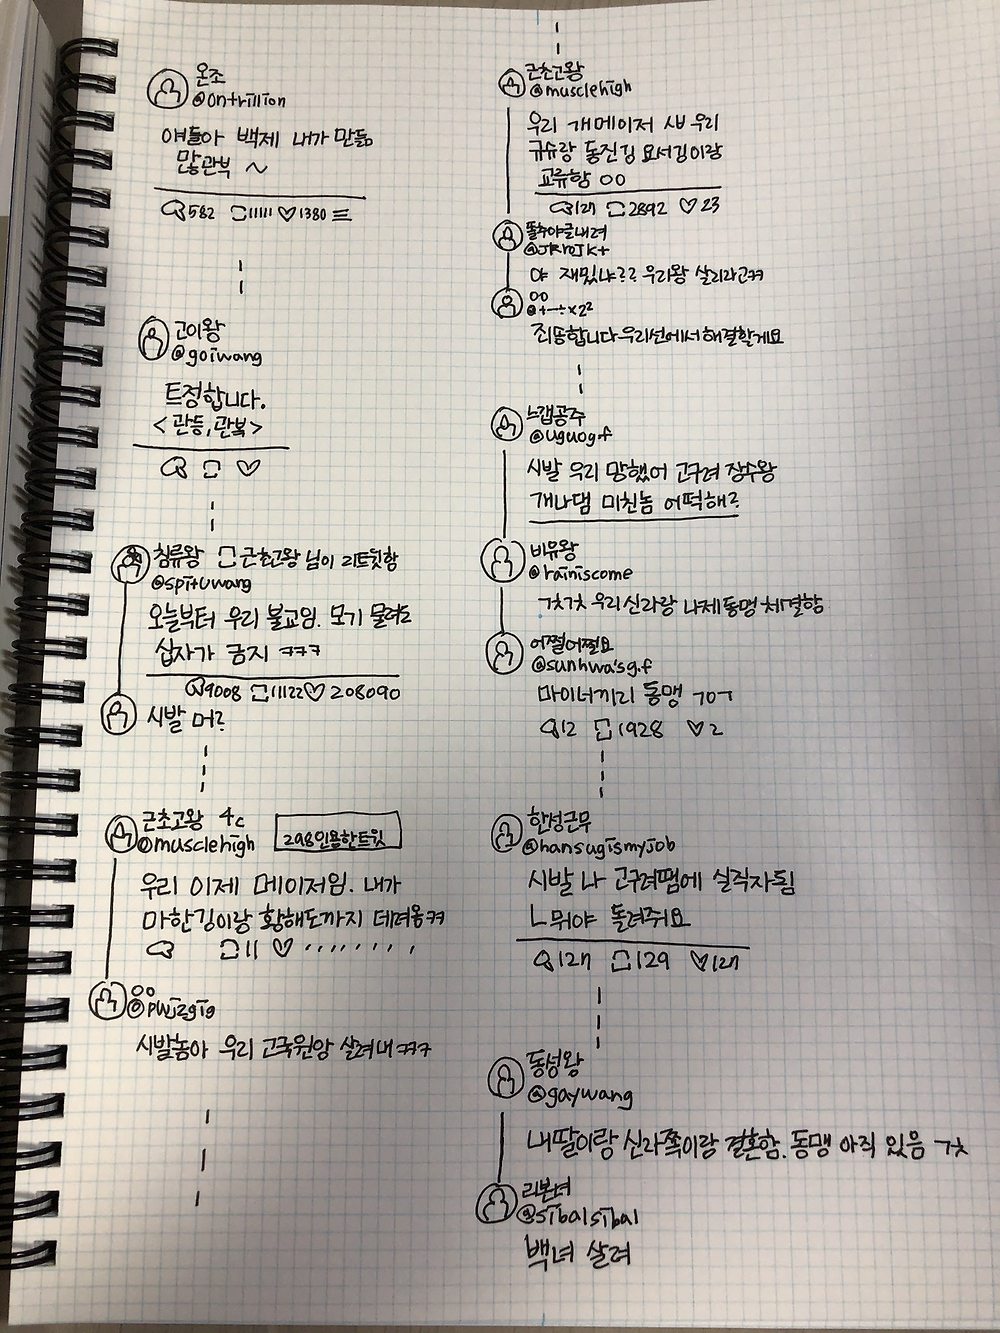 온조
@ontrillion
얘들아 백제 내가 만듦
많관부 ~
582 11111 1380
고이왕
@goiwang
트정합니다.
<관등, 관복>
침류왕 근초고왕 님이 리트윗함
@spituwang
오늘부터 우리 불교임. 모기 물려도
십자가 금지 ㅋㅋㅋ
9008 11122 208090
시발 머?
근초고왕
@musclehigh 298인용한트윗
우리 이제 메이저임. 내가
마한김이랑 황해도까지 데려옴ㅋㅋ
11
@pwizgig
시발놈아 우리 고국원왕 살려내ㅋㅋㅋ
근초고왕
@musclehigh
우리 개메이저 시부 우리
규슈랑 동진김 요서김이랑
교류함 ㅇㅇ
127 2892 23
야 재밌냐?? 우리왕 살리라고ㅋㅋ
ㅇㅇ
@+-÷×2²
죄송합니다우리선에서해결할게요
@uguogf
시발 우리 망했어 고구려 장수왕
개나댐 미친놈 어떡해?
비유왕
@rainiscome
ㄱㅊㄱㅊ 우리신라랑 나제동맹 체결함
어쩔어쩔요
@sunhwa'sg.f
마이너끼리 동맹 ㄱㅇㄱ
12 1928 2
한성근무
@hansugismyjob
시발 나 고구려땜에 실직자됨
ㄴ뭐야 돌려줘요
127 129 127
동성왕
@gaywang
내딸이랑 신라쪽이랑 결혼함. 동맹 아직 있음 ㄱㅊ
리본녀
@sibalsibal
백녀 살려